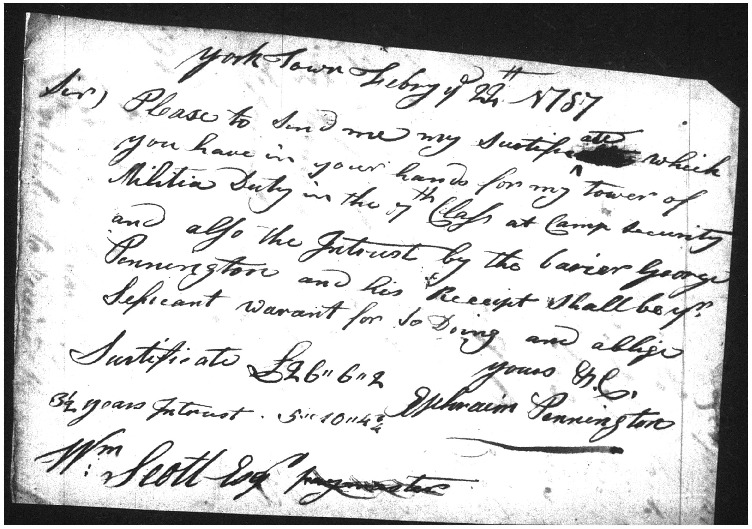 York Town Febry ye 22th 1787
Sir) Please to Send me my Surtificate which
you have in your hands for my tower of
Militia Duty in the 7th Class at Camp Security
and also the Intrust by the barier George
Pennington and his Receipt Shall be yr
Seficant warant for So Doing and ablige
yours &c.
Surtificate £26"6"2
Ephraim Pennington
3½ years Intrust. 5"10"4½
Wm: Scott Esqr paymaster